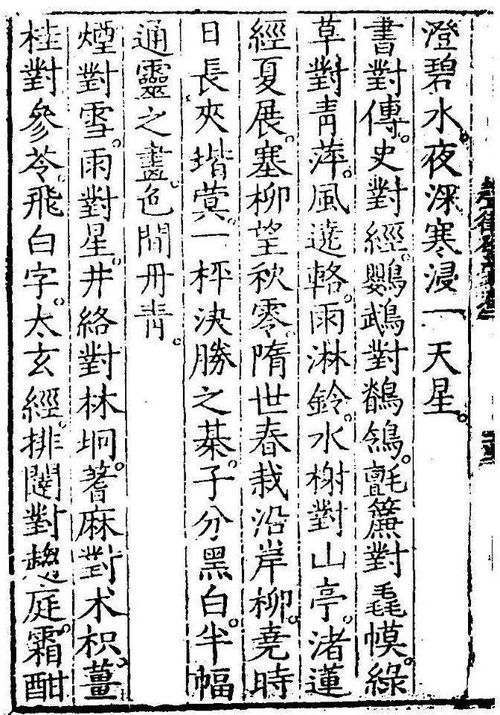 澄碧水。夜深寒浸一天星。
書對傳。史對經。鸚鵡對鶺鴒。氈簾對毳幙。綠
草對青萍。風遶輅。雨淋鈴。水榭對山亭。渚蓮
經夏展。塞柳望秋零。隋世春栽沿岸柳。堯時
日長夾堦蓂。一枰決勝之棊。子分黑白。半幅
通靈之畫。色間丹青。
煙對雪。雨對星。井絡對林坰。蓍麻對朮枳。薑
桂對參苓。飛白字。太玄經。排闥對趨庭。霜酣